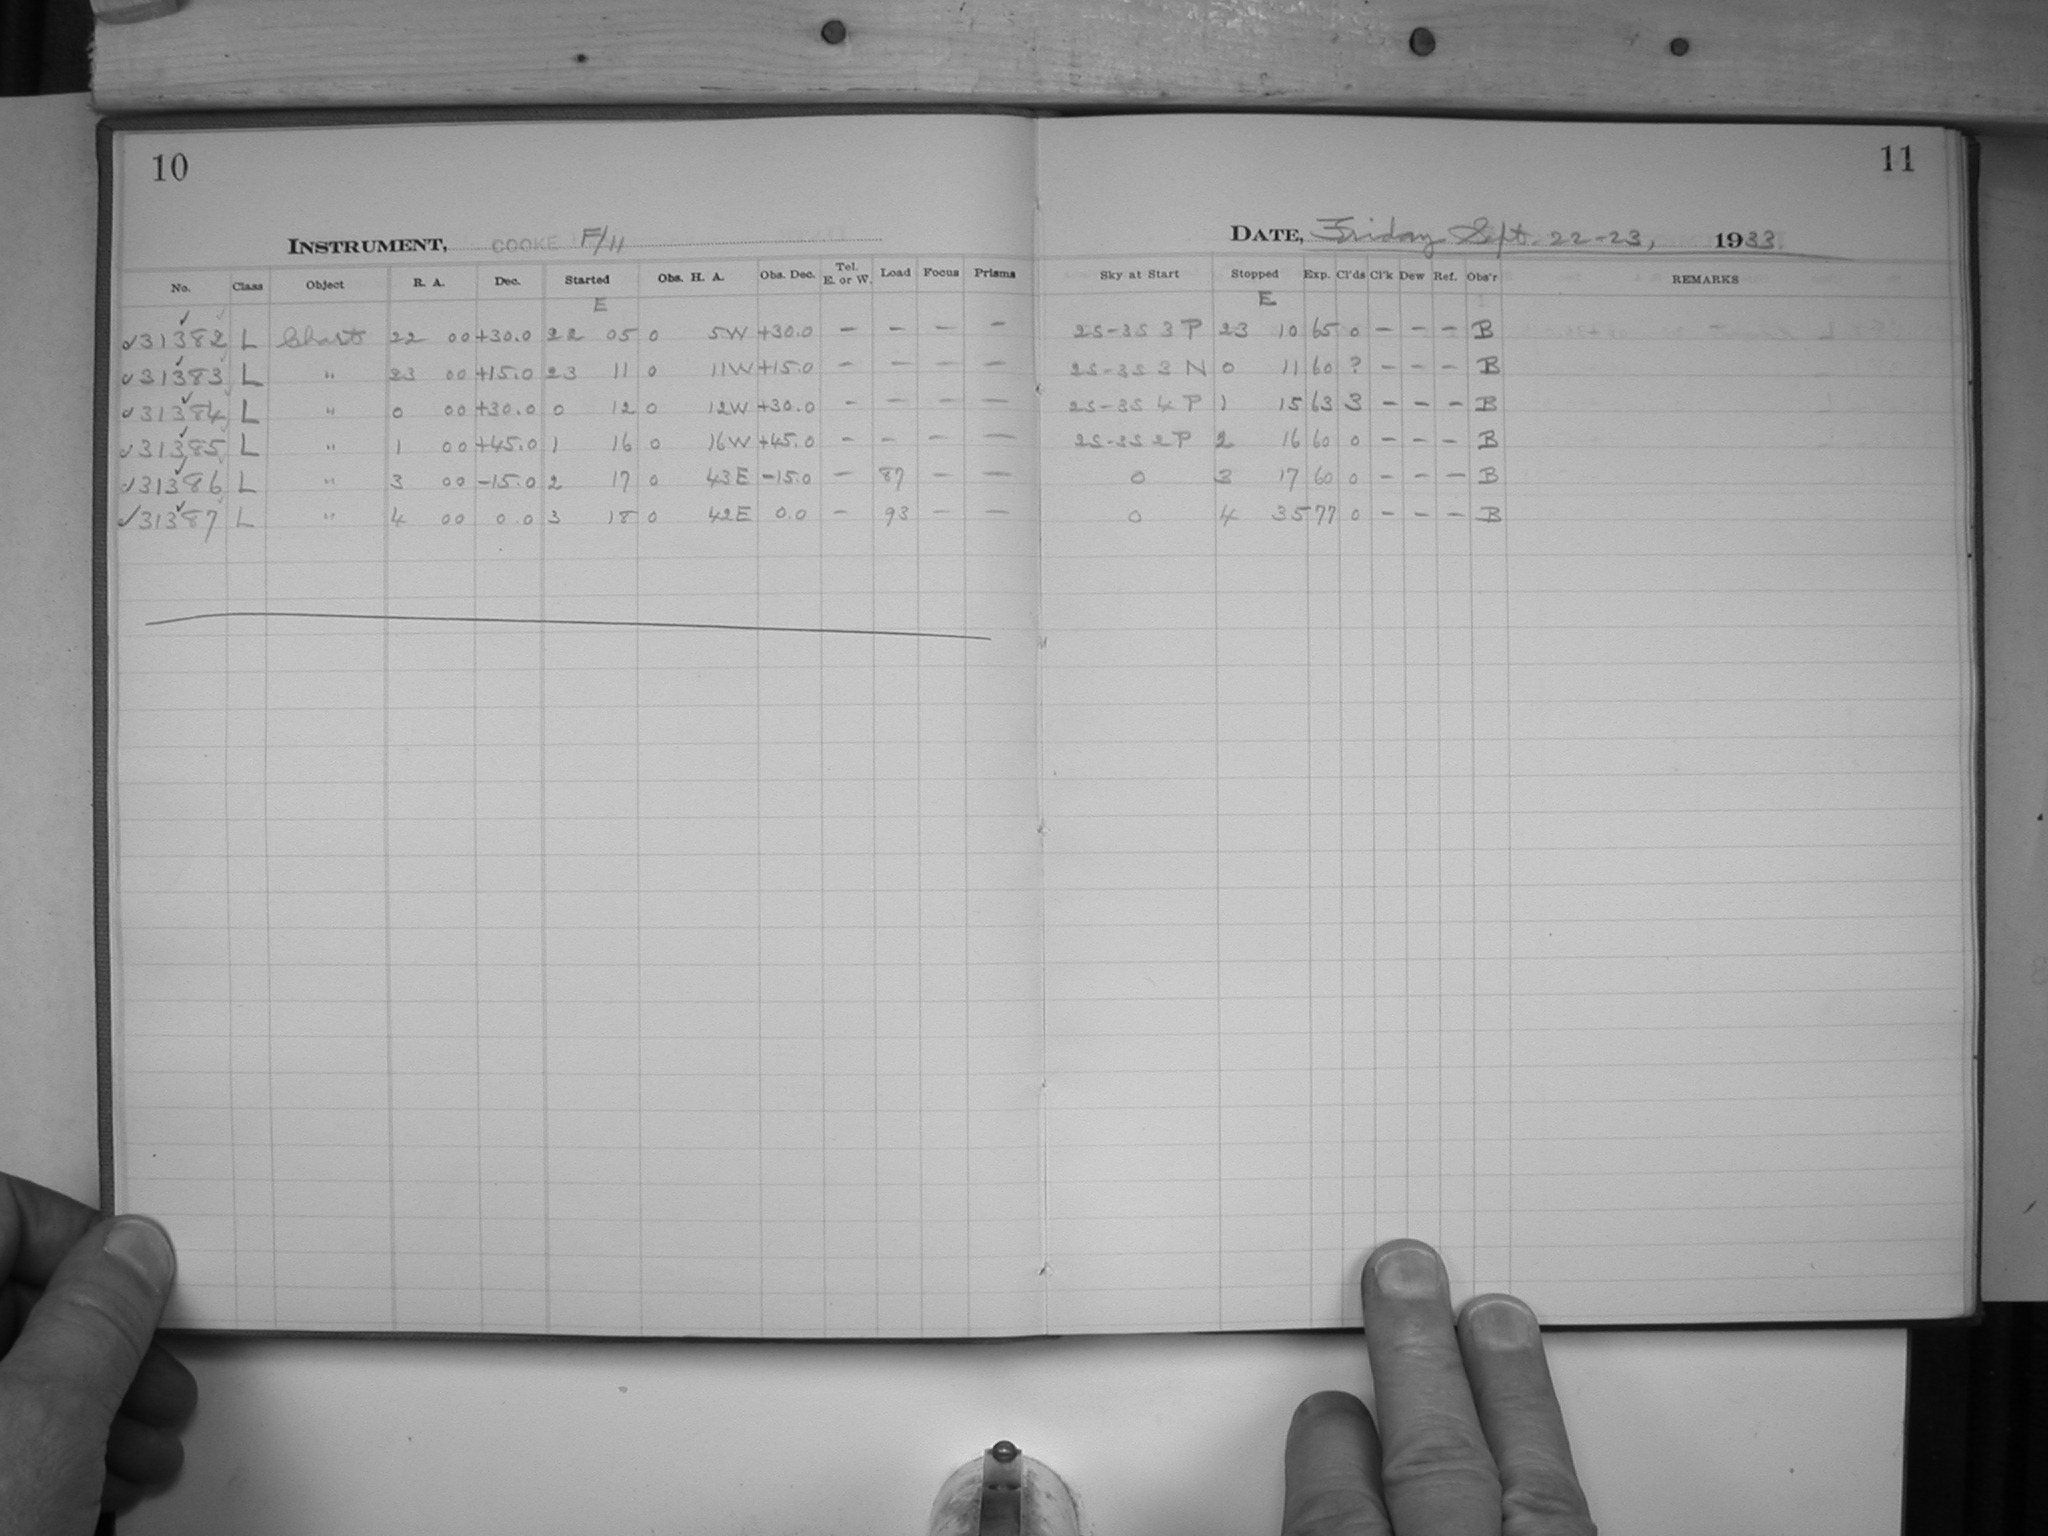 10
11
INSTRUMENT, COOKE F/11
DATE, Friday Sept. 22-23, 1933
No. Class Object R. A. Dec. Started Obs. H. A. Obs. Dec. Tel. E. or W. Load Focus Prisms Sky at Start Stopped Exp. Cl'ds Cl'k Dew Ref. Obs'r REMARKS
E E
✓31382 L Chart 22 00 +30.0 22 05 0 5W +30.0 – – – – 2S-3S 3 P 23 10 65 0 – – – B
✓31383 L " 23 00 +15.0 23 11 0 11W +15.0 – – – – 2S-3S 3 N 0 11 60 ? – – – B
✓31384 L " 0 00 +30.0 0 12 0 12W +30.0 – – – – 2S-3S 4 P 1 15 63 3 – – – B
✓31385 L " 1 00 +45.0 1 16 0 16W +45.0 – – – – 2S-3S 2 P 2 16 60 0 – – – B
✓31386 L " 3 00 -15.0 2 17 0 43E -15.0 – 87 – – 0 3 17 60 0 – – – B
✓31387 L " 4 00 0.0 3 18 0 42E 0.0 – 93 – – 0 4 35 77 0 – – – B